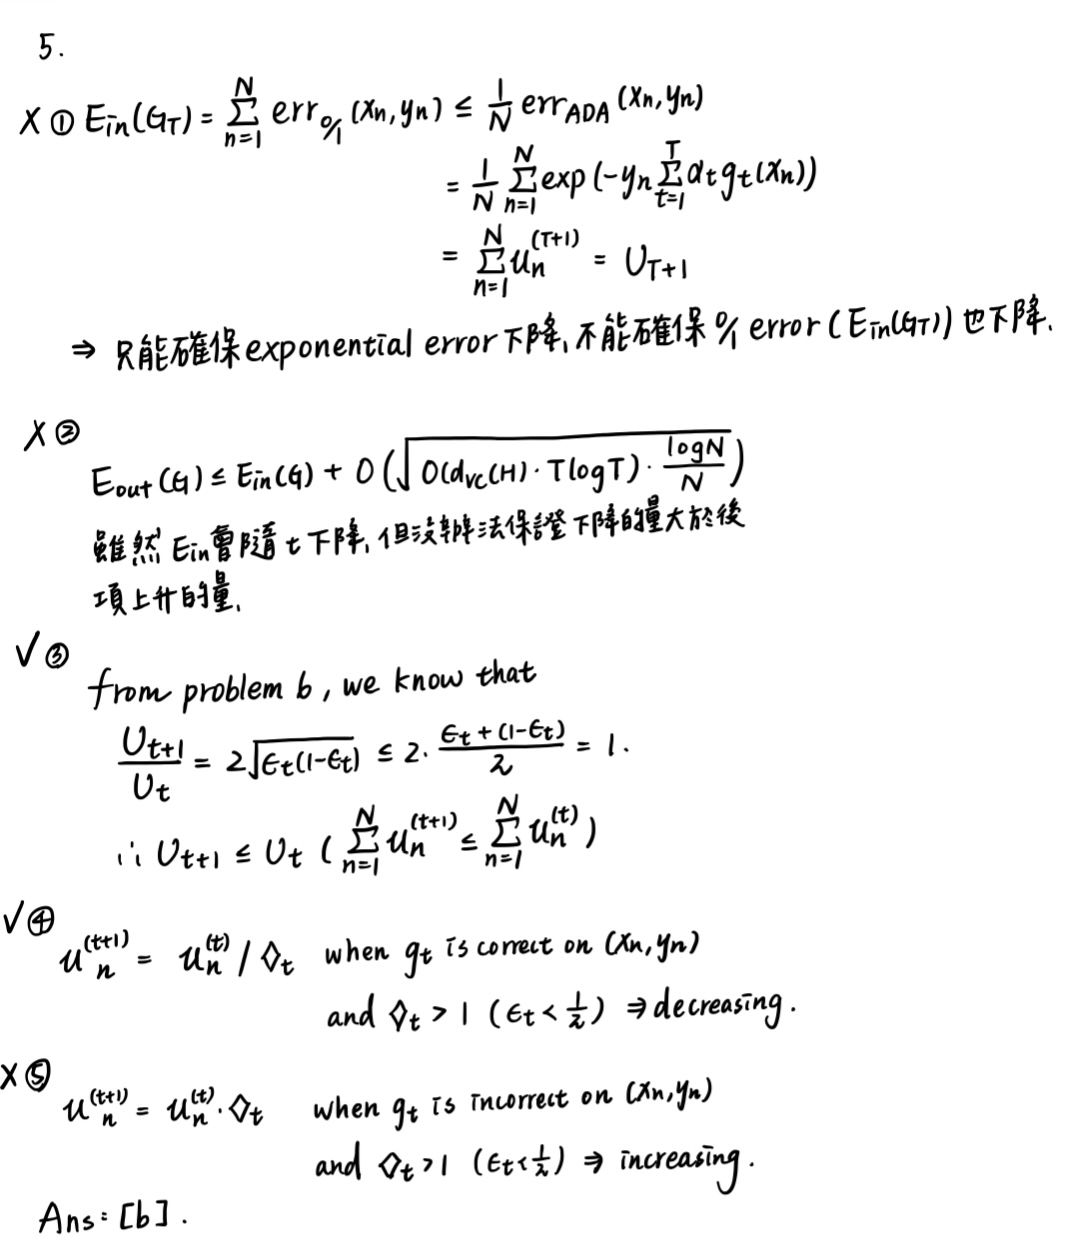 5.
X ① Ein(GT) = Σ_{n=1}^{N} err_{0/1} (xn, yn) ≤ 1/N err_{ADA} (xn, yn)
= 1/N Σ_{n=1}^{N} exp (-yn Σ_{t=1}^{T} αt gt(xn))
= Σ_{n=1}^{N} un^{(T+1)} = U_{T+1}
⇒ 只能確保 exponential error 下降, 不能確保 0/1 error (Ein(GT)) 也下降.
X ②
Eout(G) ≤ Ein(G) + O(√(O(dvc(H)·TlogT)·logN/N))
雖然 Ein 會隨 t 下降, 但沒辦法保證下降的量大於後
項上升的量.
√ ③
from problem 6, we know that
U_{t+1}/U_t = 2√(εt(1-εt)) ≤ 2·(εt+(1-εt))/2 = 1.
∴ U_{t+1} ≤ U_t (Σ_{n=1}^{N} un^{(t+1)} ≤ Σ_{n=1}^{N} un^{(t)})
√ ④
un^{(t+1)} = un^{(t)} / ◇t when gt is correct on (xn, yn)
and ◇t > 1 (εt < 1/2) ⇒ decreasing.
X ⑤
un^{(t+1)} = un^{(t)}·◇t when gt is incorrect on (xn, yn)
and ◇t > 1 (εt < 1/2) ⇒ increasing.
Ans: [b].